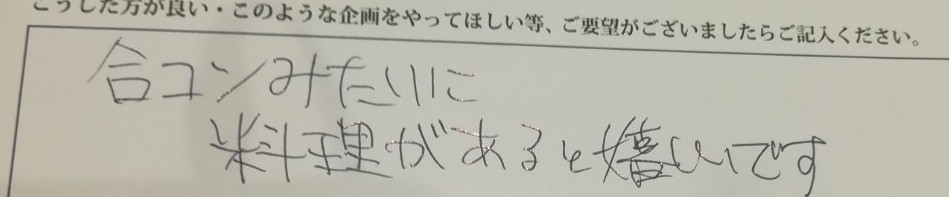 こうした方が良い・このような企画をやってほしい等、ご要望がございましたらご記入ください。
合コンみたいに
料理があると嬉しいです